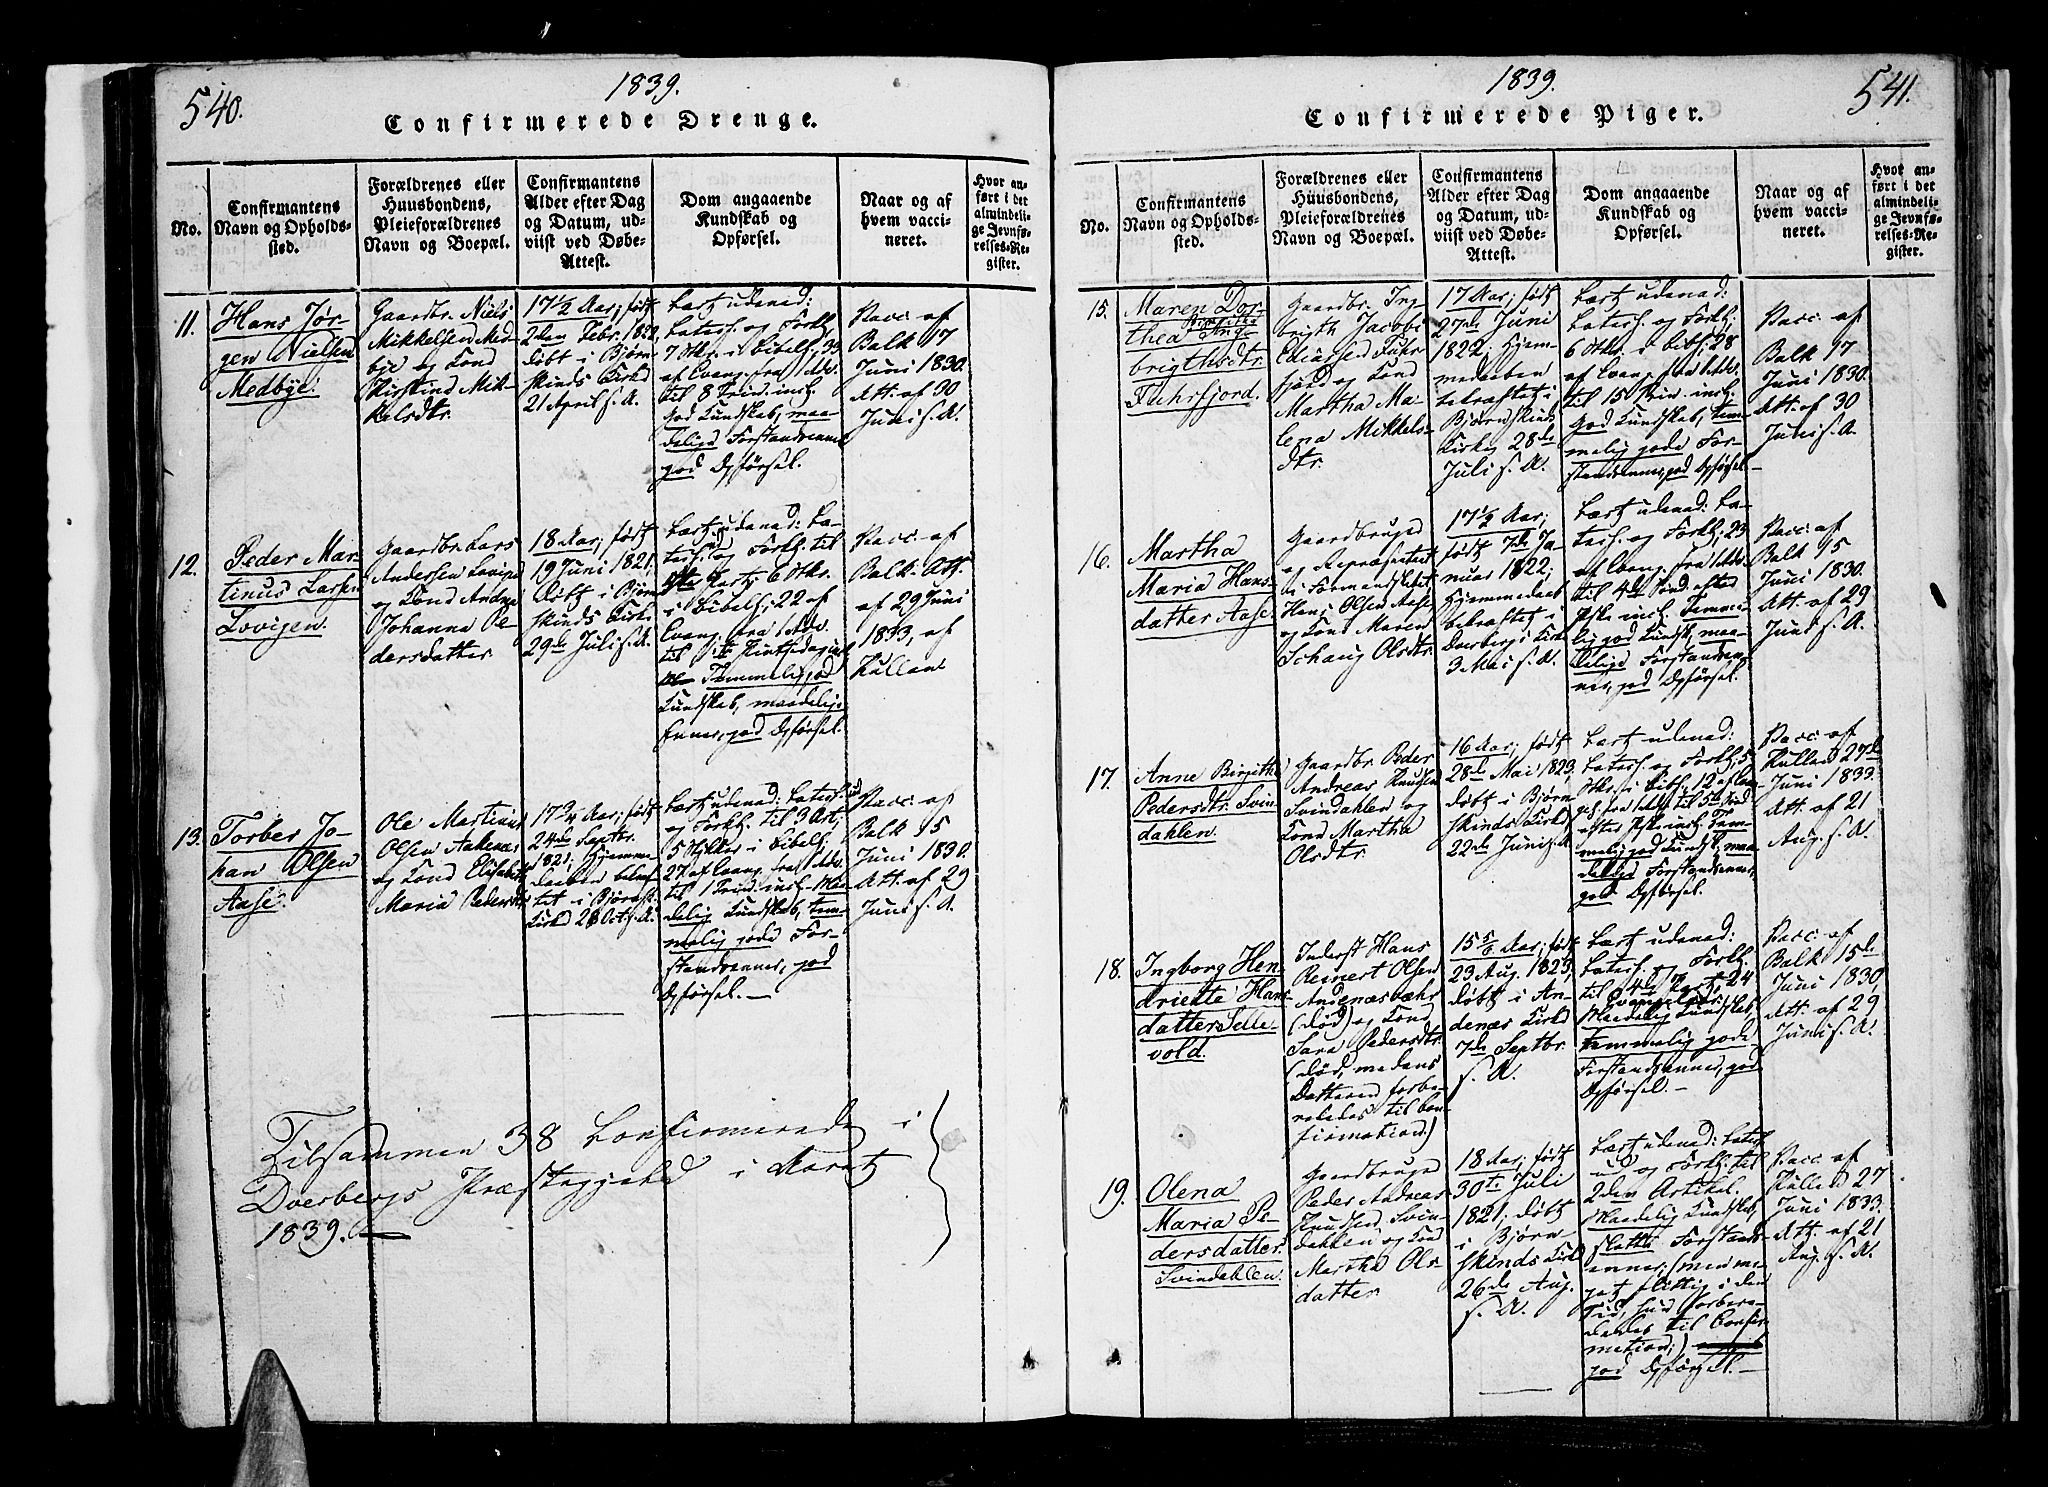 540.
1839.
Confirmerede Drenge.
No.
Confirmantens
Navn og Opholds-
sted.
Forældrenes eller
Huusbondens,
Pleieforældrenes
Navn og Boepæl.
Confirmantens
Alder efter Dag
og Datum, ud-
viist ved Døbe-
Attest.
Dom angaaende
Kundskab og
Opførsel.
Naar og af
hvem vacci-
neret.
Hvor an-
ført i det
almindeli-
ge Jevnfø-
relses-Re-
gister.
11.
Hans Jør-
gen Nielsen
Medbye.
Gaardbr. Niels
Mikkelsen Med-
bye og Kone
Mik-
kelsdtr.
17 1/2 Aar; født
2den Febr. 1822,
døbt i Bjørn-
skinds Kirke
21 April s. A.
Læst udenad:
Catech. og Forkl.
7 Stkr. i Bibelh.; 39
af Evang. fra 1 Adv.
til 8 Trin. incl.
God Kundskab, maa-
delige Forstandsevner
god Opførsel.
Vacc. af
Balk 17
Juni 1830.
Att. af 30
Juni s. A.
12.
Peder Mar-
tinus Larsen
Lovigen.
Gaardbr. Lars
Andersen Lovigen
og Kone Andrea
Johanna Pe-
dersdatter.
18 Aar; født
19 Juni 1821,
døbt i Bjørn-
skinds Kirke
29de Juli s. A.
Læst udenad: Ca-
tech. og Forkl. til
Part; 6 Stkr.
i Bibelh.; 22 af
Evang. fra 1 Adv.
til
Temmelig god
Kundskab, maadelige
Evner, god Opførsel.
Vacc. af
Balk. Att.
af 29 Juni
1833, af
Kulland
13.
Torber Jo-
han Olsen
Aase.
Ole Martinus
Olsen
og Kone Elisabeth
Maria Pedersdtr.
17 3/4 Aar; født
24de Septbr.
1821; Hjemme-
daaben bekræf-
tet i Bjørnsk.
Kirke 28 Oct. s. A.
Læst udenad: Catech.
og Forkl. til 3 Art.;
5 Stykker i Bibelh.;
27 af Evang. fra 1 Adv.
til 1 Trin. incl. Maa-
delig Kundskab, tem-
melig gode For-
standsevner, god
Opførsel.—
Vacc. af
Balk 15
Juni 1830.
Att. af 29
Juni s. A.
Tilsammen 38 Confirmerede i
Dverbergs Præstegjeld i Aaret
1839.—
1839.
541.
Confirmerede Piger.
No.
Confirmantens
Navn og Opholds-
sted.
Forældrenes eller
Huusbondens,
Pleieforældrenes
Navn og Boepæl.
Confirmantens
Alder efter Dag
og Datum, ud-
viist ved Døbe-
Attest.
Dom angaaende
Kundskab og
Opførsel.
Naar og af
hvem vacci-
neret.
Hvor an-
ført i det
almindeli-
ge Jevnfø-
relses-Re-
gister.
15.
Maren Dor-
thea Birgitha Inge-
brigthsdtr.
Fuhrfjord.
Gaardbr. Ing-
brigth Jacobi
Eliassen Fuhr-
fjord og Kone
Martha Ma-
lena Mikkels-
dtr.
17 Aar; født
27de Juni
1822. Hjem-
medaaben
bekræftet i
Bjørnskinds
Kirke 28de
Juli s. A.
Læst udenad:
Catech. og Forkl.
6 Stkr. i Bibl.; 28
af Evang. fra 1 Adv.
til 15 Trin. incl.
God Kundskab, tem-
melig gode For-
standsevner, god Opførsel.—
Vacc. af
Balk 17
Juni 1830.
Att. af 30
Juni s. A.
16.
Martha
Maria Hans-
datter Aase.
Gaardbruger
og Repræsentant
i Formandskabet
Hans Olsen Aase
og Kone Maren
Schaug Olsdtr.
17 1/2 Aar;
født 7de Ja-
nuar 1822;
Hjemmedaab
bekræftet i
Dverbergs Kirke
3 Mai s. A.
Læst udenad: Ca-
tech. og Forkl.; 23
af Evang. fra 1 Adv.
til 4de Sønd. efter
Paaske incl. Temme-
lig god Kundsk., maa-
delige Forstandsev-
ner, god Opførsel.
Vacc. af
Balk 15
Juni 1830.
Att. af 29
Juni s. A.
17.
Anne Birgitha
Pedersdtr. Svin-
dahlen.
Gaardbr. Peder
Andreas Knudsen
Svindahlen og
Kone Martha
Olsdtr.
16 Aar; født
28de Mai 1823,
døbt i Bjørn-
skinds Kirke
22de Juni s. A.
Læst udenad:
Catech. og Forkl.; 5
Stkr. i Bibl.; 12 af Evan-
gel. fra 1 Adv. til 5te Sønd.
efter Paaske incl. Tem-
melig god Kundsk., maa-
delige Forstandsevner,
god Opførsel.
Vacc. af
Kulland 27de
Juni 1833.
Att. af 21
Aug. s. A.
18.
Ingborg Hen-
driette Hans-
datter Selle-
vold.
Inderst Hans
Reinert Olsen
Andenæsvær
(død) og Kone
Sara Pedersdtr.
(død, medens
Datteren forbe-
rededes til Con-
firmation.)
15 5/6 Aar; født
23 Aug. 1823,
døbt i An-
denæs Kirke
7de Septbr.
s. A.
Læst udenad:
Catech. og Forkl.
til 4de Part, 24
Evangelier.
Maadelig Kundskab,
temmelig gode
Forstandsevner, god
Opførsel.—
Vacc. af
Balk 15de
Juni 1830,
Att. af 29
Juni s. A.
19.
Olena
Maria Pe-
dersdatter
Svindahlen.
Gaardbruger
Peder Andreas
Knudsen Svin-
dahlen og Kone
Martha Ols-
datter.
18 Aar; født
30te Juli
1821, døbt
i Bjørn-
skinds Kirke
26de Aug.
s. A.
Læst udenad: Catech.
og Forkl. til
2den Artikel.
Maadelig Kundskab,
slette Forstands-
evner; (men me-
get flittig i den
Tid, hun forbere-
dedes til Confir-
mation;)
god Opførsel.—
Vacc. af
Kulland 27
Juni 1833.
Att. af 21
Aug. s. A.